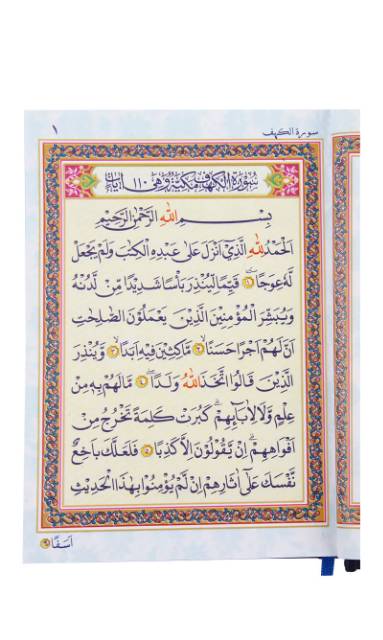 ١
سورة الكهف
سُوْرَةُ الْكَهْفِ مَكِّيَّةٌ وَّهِيَ ١١٠ اٰيَاتٍ
بِسْمِ اللهِ الرَّحْمٰنِ الرَّحِيْمِ
اَلْحَمْدُ لِلّٰهِ الَّذِيْٓ اَنْزَلَ عَلٰى عَبْدِهِ الْكِتٰبَ وَلَمْ يَجْعَلْ
لَّهٗ عِوَجًا ۝١ قَيِّمًا لِّيُنْذِرَ بَأْسًا شَدِيْدًا مِّنْ لَّدُنْهُ
وَيُبَشِّرَ الْمُؤْمِنِيْنَ الَّذِيْنَ يَعْمَلُوْنَ الصّٰلِحٰتِ
اَنَّ لَهُمْ اَجْرًا حَسَنًا ۝٢ مَّاكِثِيْنَ فِيْهِ اَبَدًا ۝٣ وَّيُنْذِرَ
الَّذِيْنَ قَالُوا اتَّخَذَ اللهُ وَلَدًا ۝٤ مَا لَهُمْ بِهٖ مِنْ
عِلْمٍ وَّلَا لِاٰبَآئِهِمْ ۗ كَبُرَتْ كَلِمَةً تَخْرُجُ مِنْ
اَفْوَاهِهِمْ ۗ اِنْ يَّقُوْلُوْنَ اِلَّا كَذِبًا ۝٥ فَلَعَلَّكَ بَاخِعٌ
نَّفْسَكَ عَلٰٓى اٰثَارِهِمْ اِنْ لَّمْ يُؤْمِنُوْا بِهٰذَا الْحَدِيْثِ
اَسَفًا ۝٦